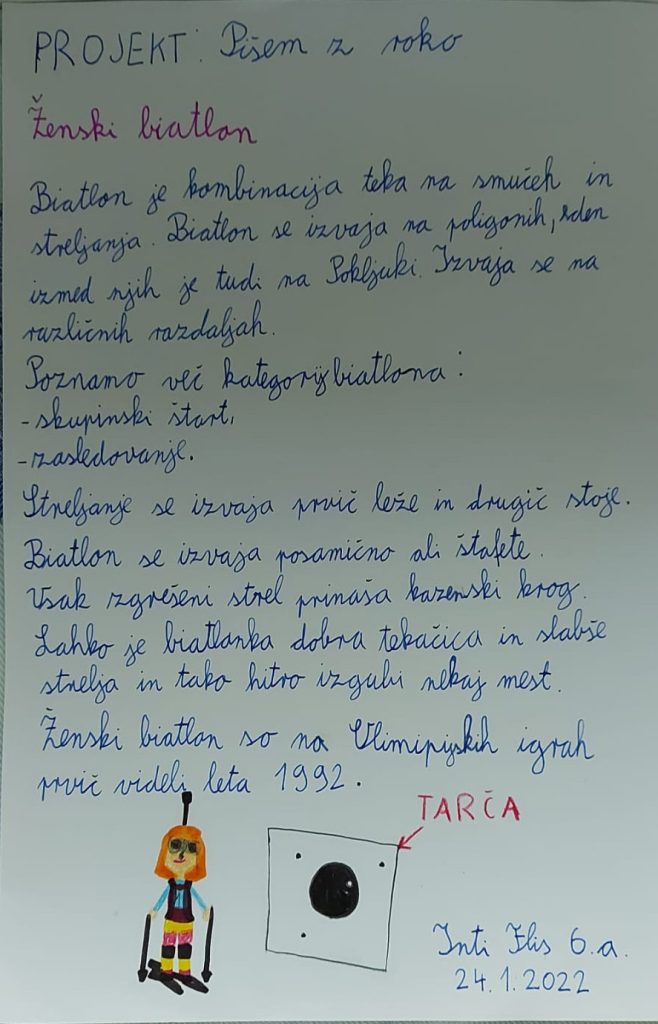 PROJEKT: Pišem z roko
Ženski biatlon
Biatlon je kombinacija teka na smučeh in
streljanja. Biatlon se izvaja na poligonih, eden
izmed njih je tudi na Pokljuki. Izvaja se na
različnih razdaljah.
Poznamo več kategorij biatlona:
- skupinski štart,
- zasledovanje.
Streljanje se izvaja prvič leže in drugič stoje.
Biatlon se izvaja posamično ali štafete.
Vsak zgrešeni strel prinaša kazenski krog.
Lahko je biatlanka dobra tekačica in slabše
strelja in tako hitro izgubi nekaj mest.
Ženski biatlon so na Olimipijskih igrah
prvič videli leta 1992.
TARČA
Inti Flis 6.a.
24.1.2022